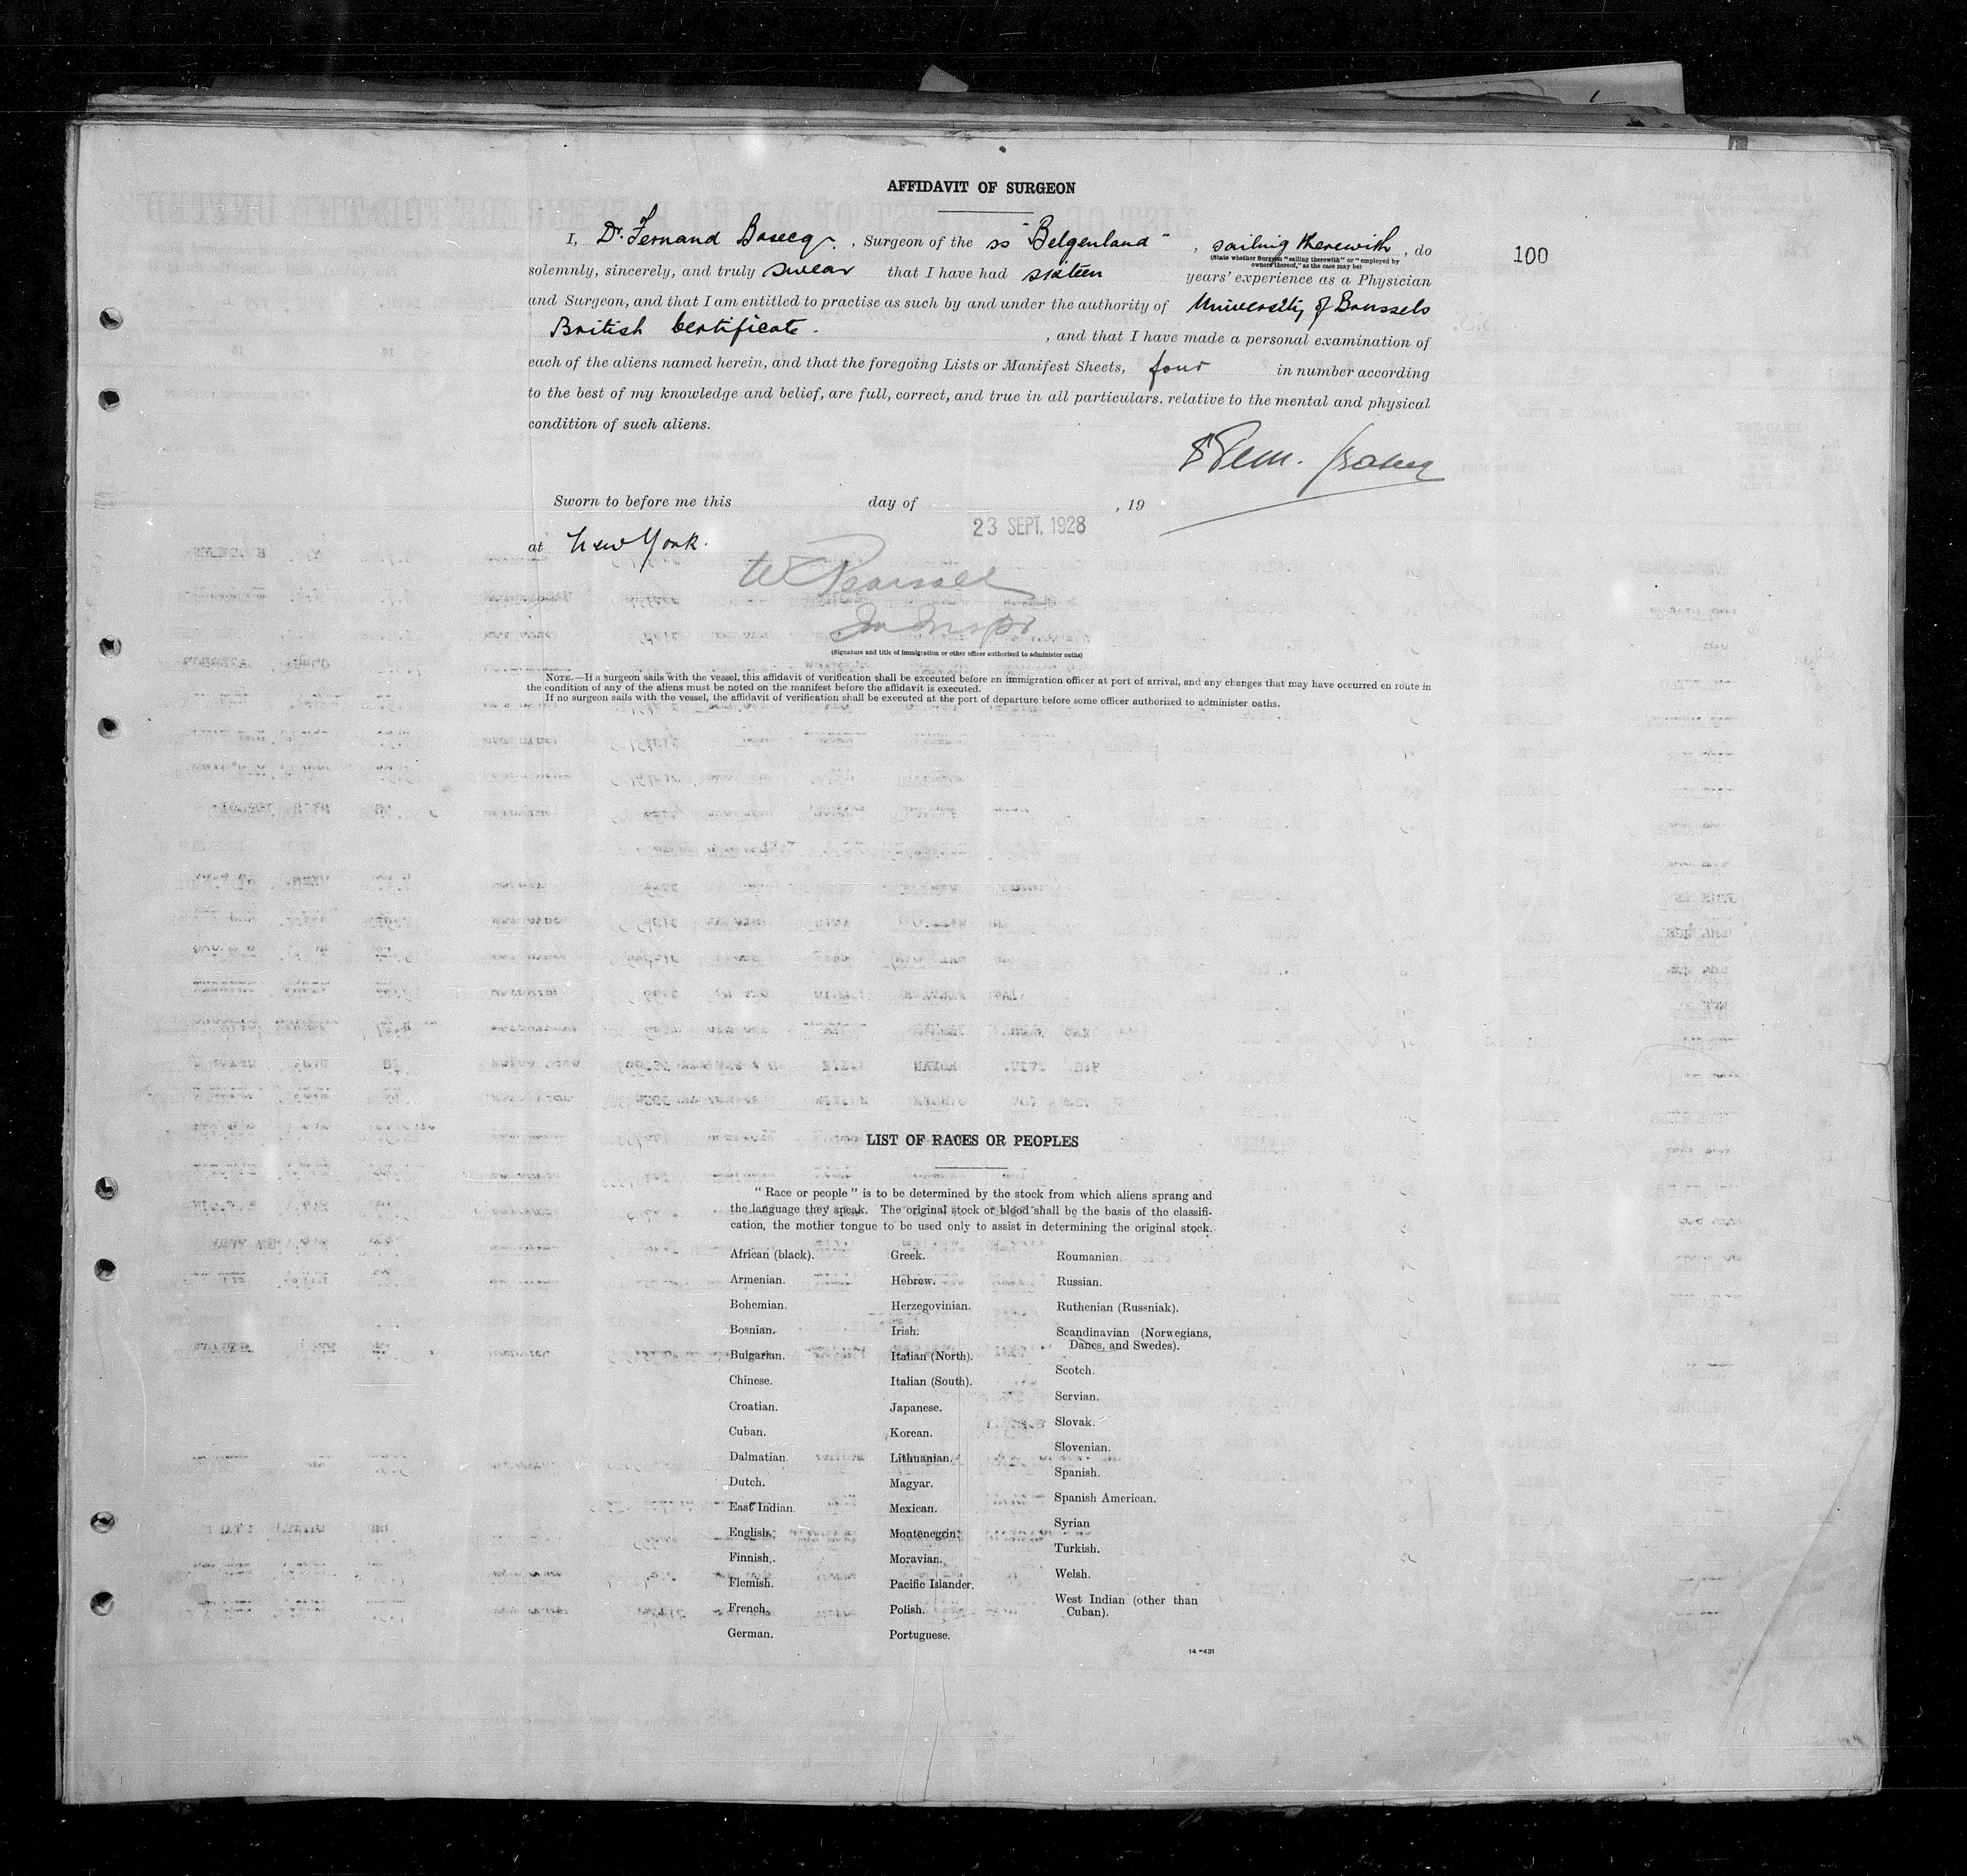 AFFIDAVIT OF SURGEON
I, Dr. Fernand Basecq, Surgeon of the ss "Belgenland", sailing therewith, do
100
(State whether Surgeon "sailing therewith" or "employed by
owners thereof," as the case may be)
solemnly, sincerely, and truly swear that I have had sixteen years' experience as a Physician
and Surgeon, and that I am entitled to practise as such by and under the authority of University of Brussels
British Certificate. , and that I have made a personal examination of
each of the aliens named herein, and that the foregoing Lists or Manifest Sheets, four in number according
to the best of my knowledge and belief, are full, correct, and true in all particulars, relative to the mental and physical
condition of such aliens.
Sworn to before me this day of , 19
23 SEPT. 1928
at New York.
W Pearsall
Im Inspr
(Signature and title of immigration or other officer authorized to administer oaths)
NOTE.—If a surgeon sails with the vessel, this affidavit of verification shall be executed before an immigration officer at port of arrival, and any changes that may have occurred en route in
the condition of any of the aliens must be noted on the manifest before the affidavit is executed.
If no surgeon sails with the vessel, the affidavit of verification shall be executed at the port of departure before some officer authorized to administer oaths.
LIST OF RACES OR PEOPLES
"Race or people" is to be determined by the stock from which aliens sprang and
the language they speak. The original stock or blood shall be the basis of the classifi-
cation, the mother tongue to be used only to assist in determining the original stock.
African (black).
Armenian.
Bohemian.
Bosnian.
Bulgarian.
Chinese.
Croatian.
Cuban.
Dalmatian.
Dutch.
East Indian.
English.
Finnish.
Flemish.
French.
German.
Greek.
Hebrew.
Herzegovinian.
Irish.
Italian (North).
Italian (South).
Japanese.
Korean.
Lithuanian.
Magyar.
Mexican.
Montenegrin.
Moravian.
Pacific Islander.
Polish.
Portuguese.
Roumanian.
Russian.
Ruthenian (Russniak).
Scandinavian (Norwegians,
Danes, and Swedes).
Scotch.
Servian.
Slovak.
Slovenian.
Spanish.
Spanish American.
Syrian
Turkish.
Welsh.
West Indian (other than
Cuban).
14-431